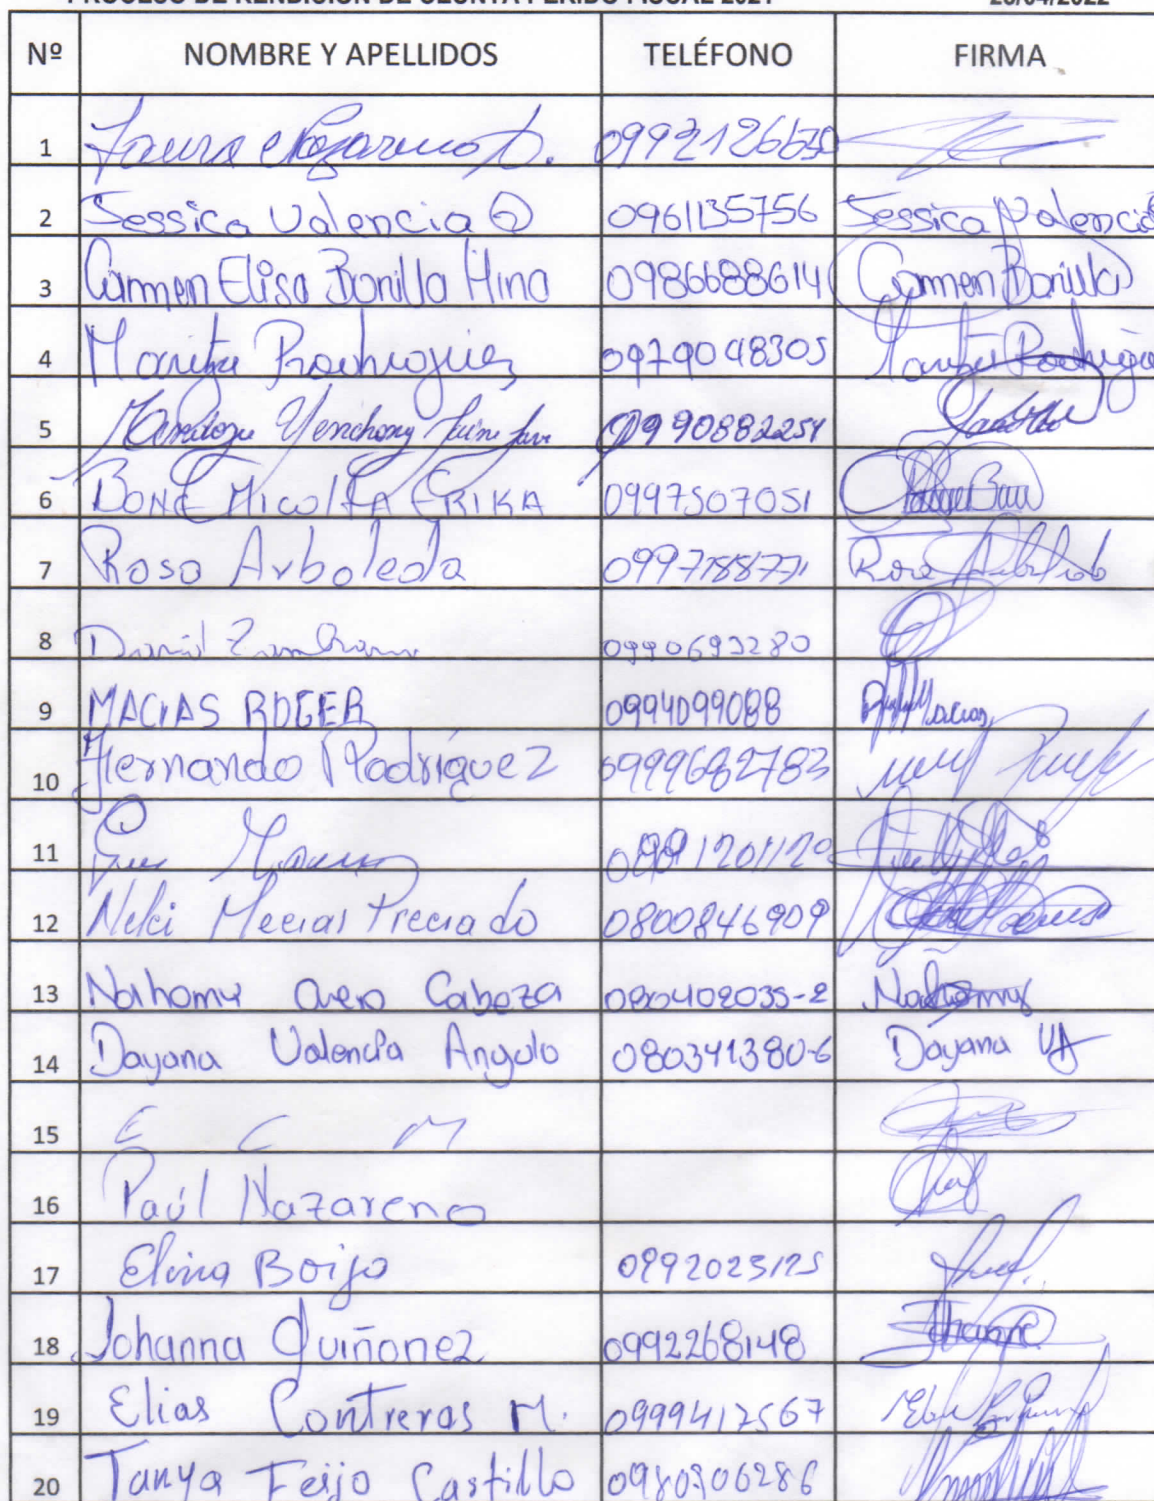 PROCESO DE RENDICION DE CEUNTA PERIDO FISCAL 2021 28/04/2022
Nº NOMBRE Y APELLIDOS TELÉFONO FIRMA
1 Laura Nazareno D.
2 Jessica Valencia Q 0961135756 Jessica Valencia
3 Carmen Elisa Bonilla Mina 0986688614 Carmen Bonilla
4 Maritza Rodriguez 0979048305 Maritza Rodrigu
5 Mendoza 0990882254
6 BONE MICOLTA ERIKA 0997507051
7 Rosa Arboleda 0997788771 Rosa Arboleda
8 Daniel Zambrano 0990693280
9 MACIAS ROGER 0994099088 Macias
10 Hernando Rodríguez 0999682783
11
12 Nelci Mecias Preciado 0800846909
13 Nathomy Cabeza 080402035-2 Nathomy
14 Dayana Valencia Angulo 080341380-6 Dayana VA
15 E C M
16 Paúl Nazareno
17 Elina Boija 0992023125
18 Johanna Quiñonez 0992268148 Johanna
19 Elias Contreras M. 0999412567
20 Tanya Feijo Castillo 0980306286